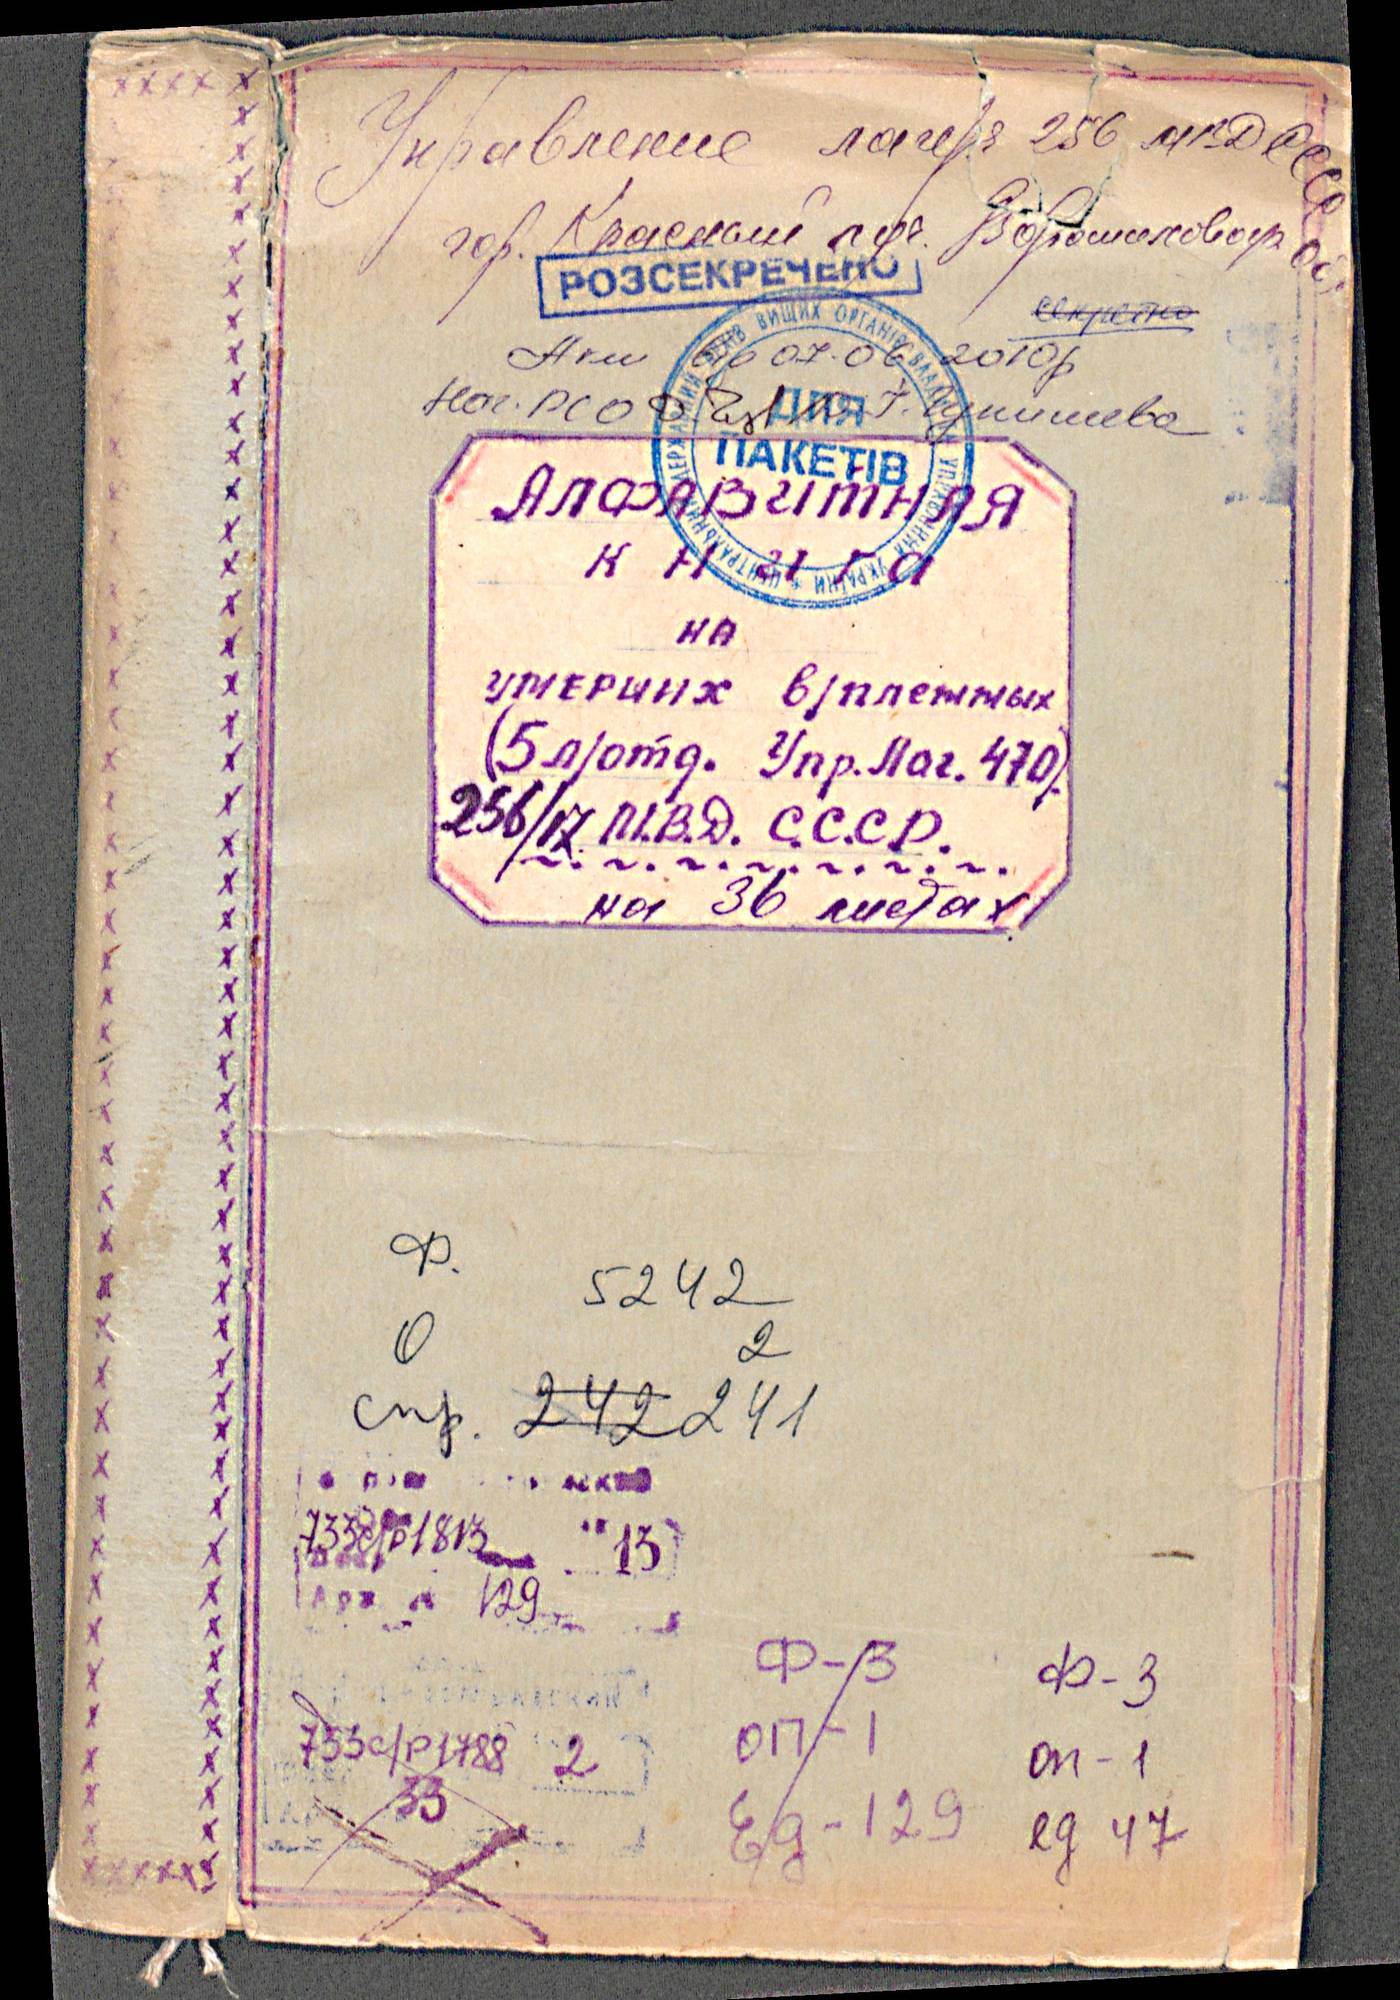 Управление лагеря 256 МВД СССР
гор. Красный луч. Ворошиловгр обл
РОЗСЕКРЕЧЕНО
секретно
Акт 07.06 2010р
Нач.
ЦЕНТРАЛЬНИЙ ДЕРЖАВНИЙ АРХІВ ВИЩИХ ОРГАНІВ ВЛАДИ ТА УПРАВЛІННЯ УКРАЇНИ
ДЛЯ
ПАКЕТІВ
АЛФАВИТНАЯ
КНИГА
на
УМЕРШИХ в/пленных
(5 л/отд. Упр. Лаг. 470)
256/17 М.В.Д. С.С.С.Р.
на 36 листах
Ф. 5242
О 2
спр. 242 241
733с/р1813 13
Арх 129
733с/р1788 2
33
Ф-3
ОП-1
Ед-129
Ф-3
оп-1
ед 47